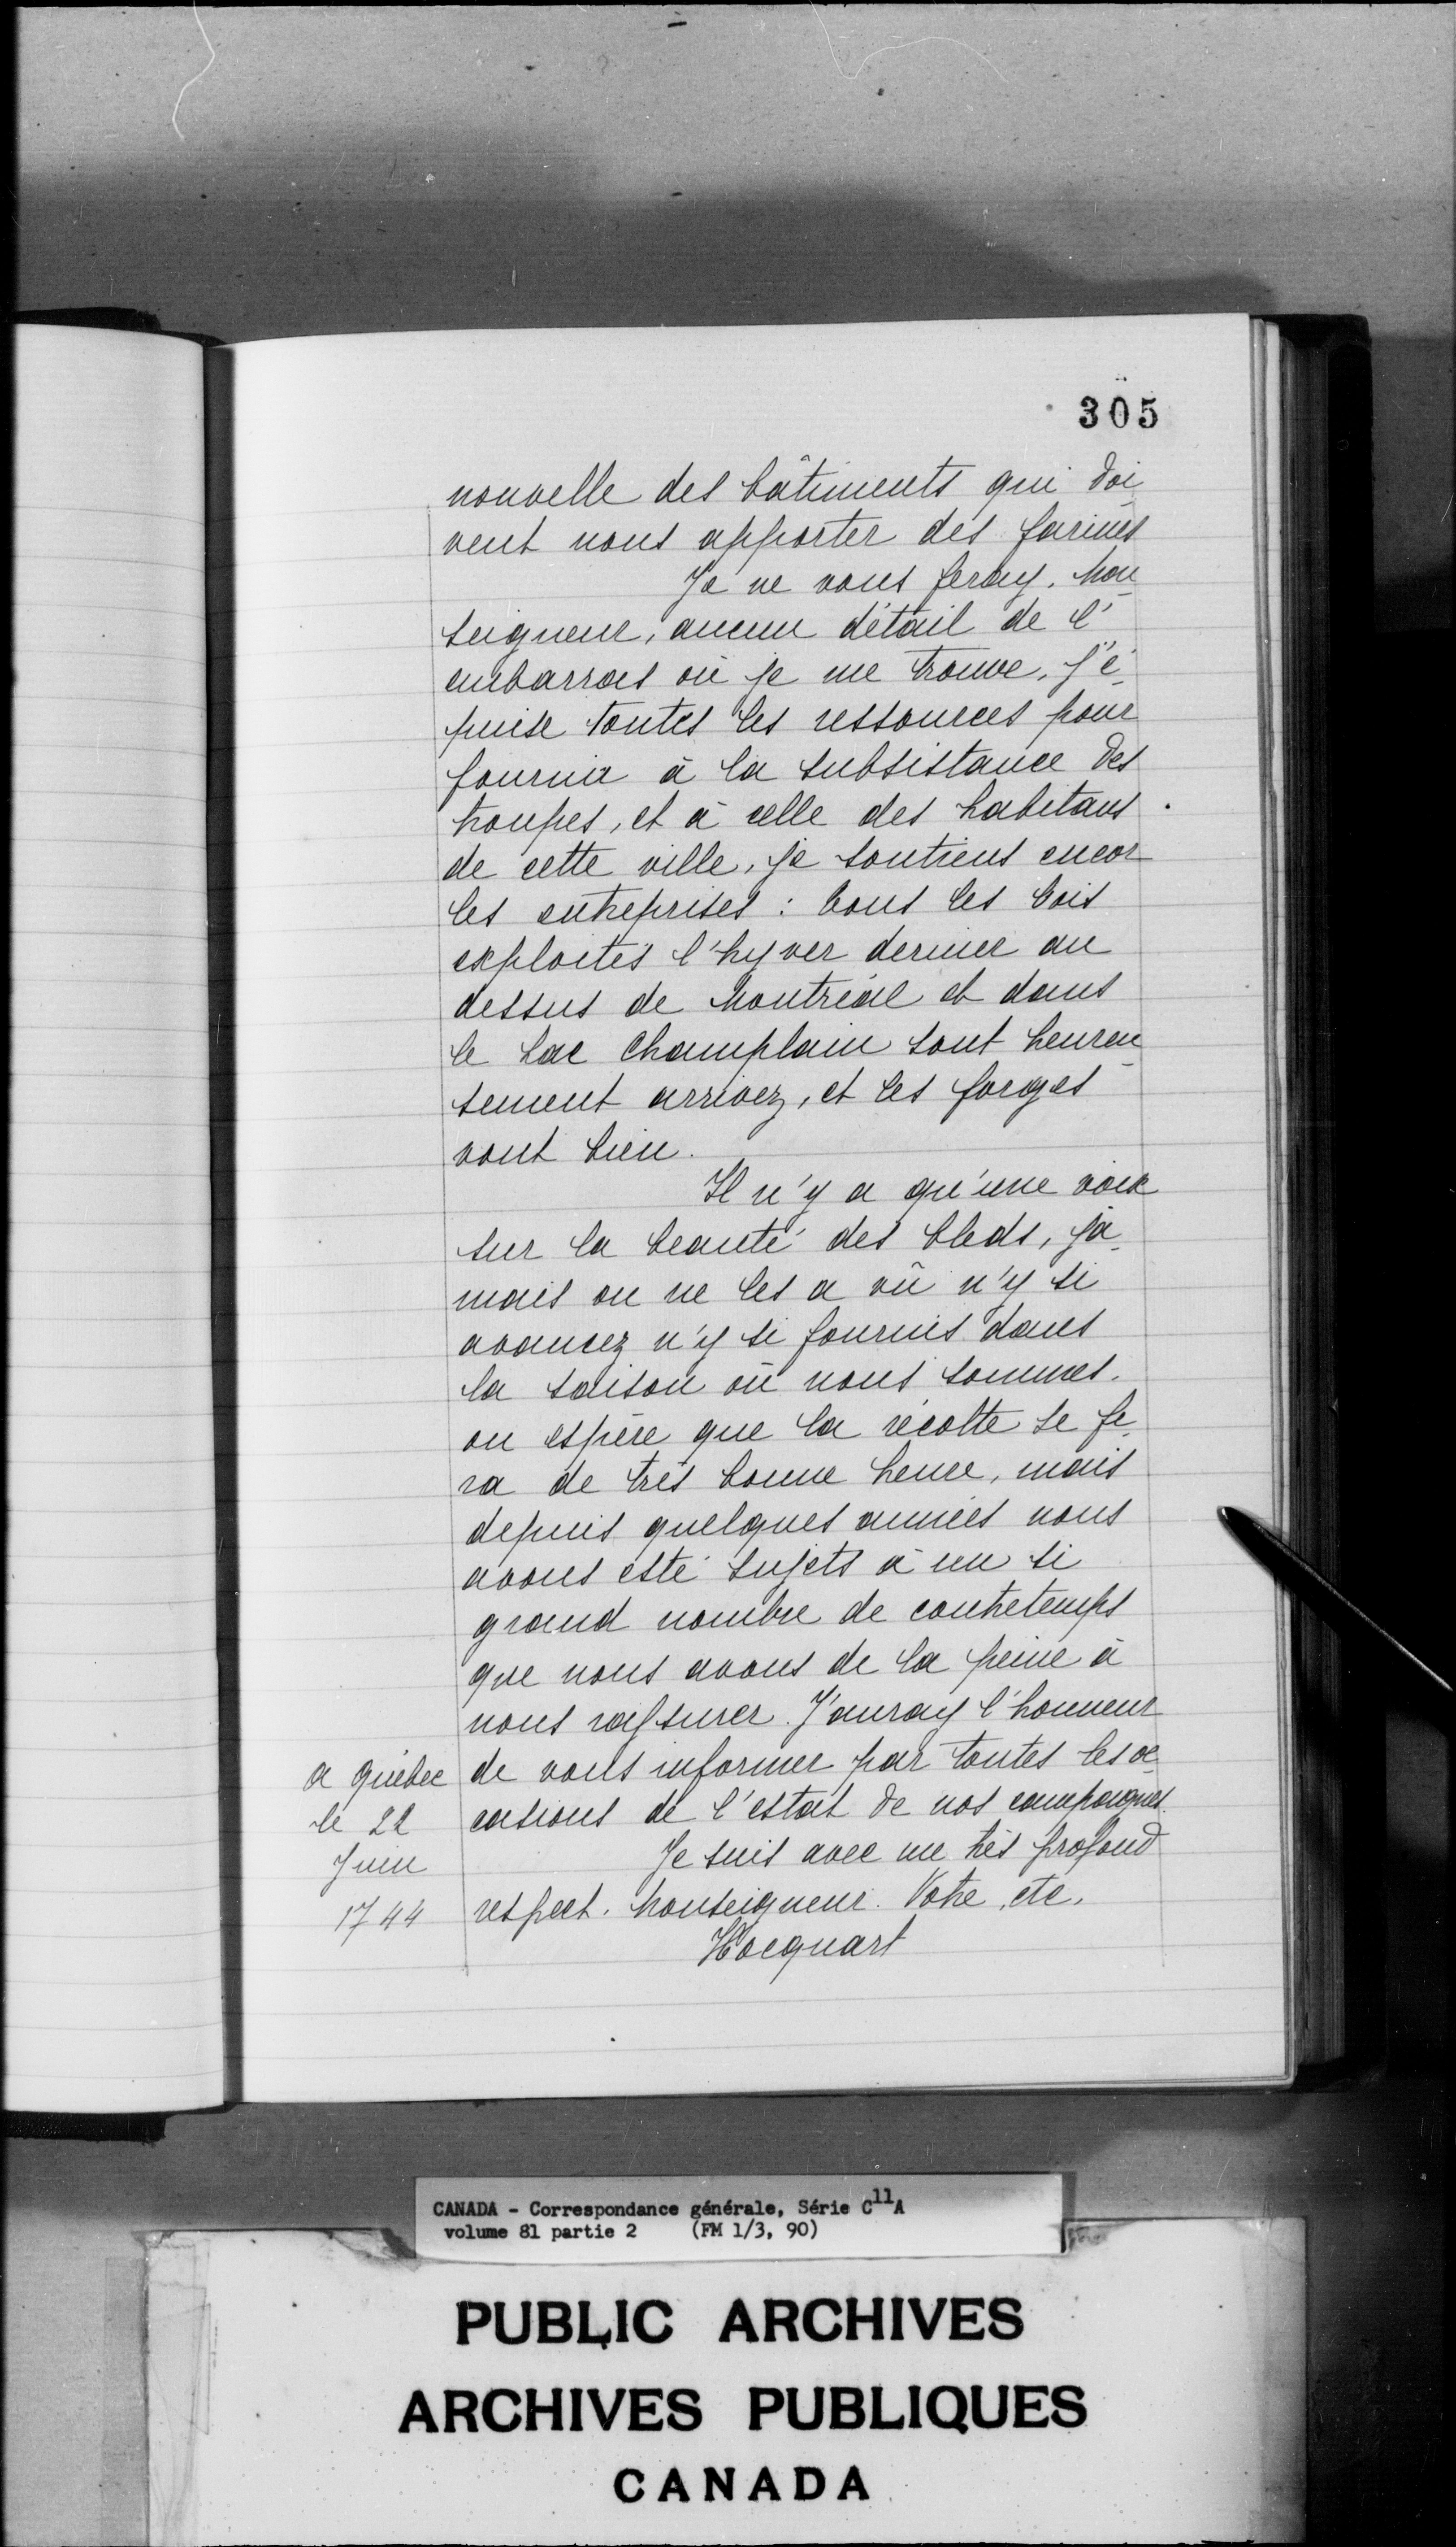 305
nouvelle des bâtiments qui doi-
vent nous apporter des farines
Je ne vous feray, Mon-
seigneur, aucun détail de l'
embarras où je me trouve, j'é-
puise toutes les ressources pour
fournir à la subsistance des
troupes, et à celle des habitans
de cette ville, je soutiens encor
les entreprises : tous les bois
exploités l'hyver dernier au
dessus de Montréal et dans
le Lac Champlain sont heureu-
sement arrivez, et les forges
vont bien.
Il n'y a qu'une voix
sur la beauté des bleds, ja-
mais on ne les a vû n'y si
avancez n'y si fournis dans
la saison où nous sommes.
on espère que la récolte se fe-
ra de très bonne heure, mais
depuis quelques années nous
avons esté sujets à un si
grand nombre de contretemps
que nous avons de la peine à
nous rassurer. J'auray l'honneur
de vous informer par toutes les oc-
casions de l'estat de nos campagnes.
Je suis avec un très profond
respect. Monseigneur. Votre, etc.
Hocquart
a Québec
le 22
Juin
1744
CANADA - Correspondance générale, Série C11A
volume 81 partie 2 (FM 1/3, 90)
PUBLIC ARCHIVES
ARCHIVES PUBLIQUES
CANADA